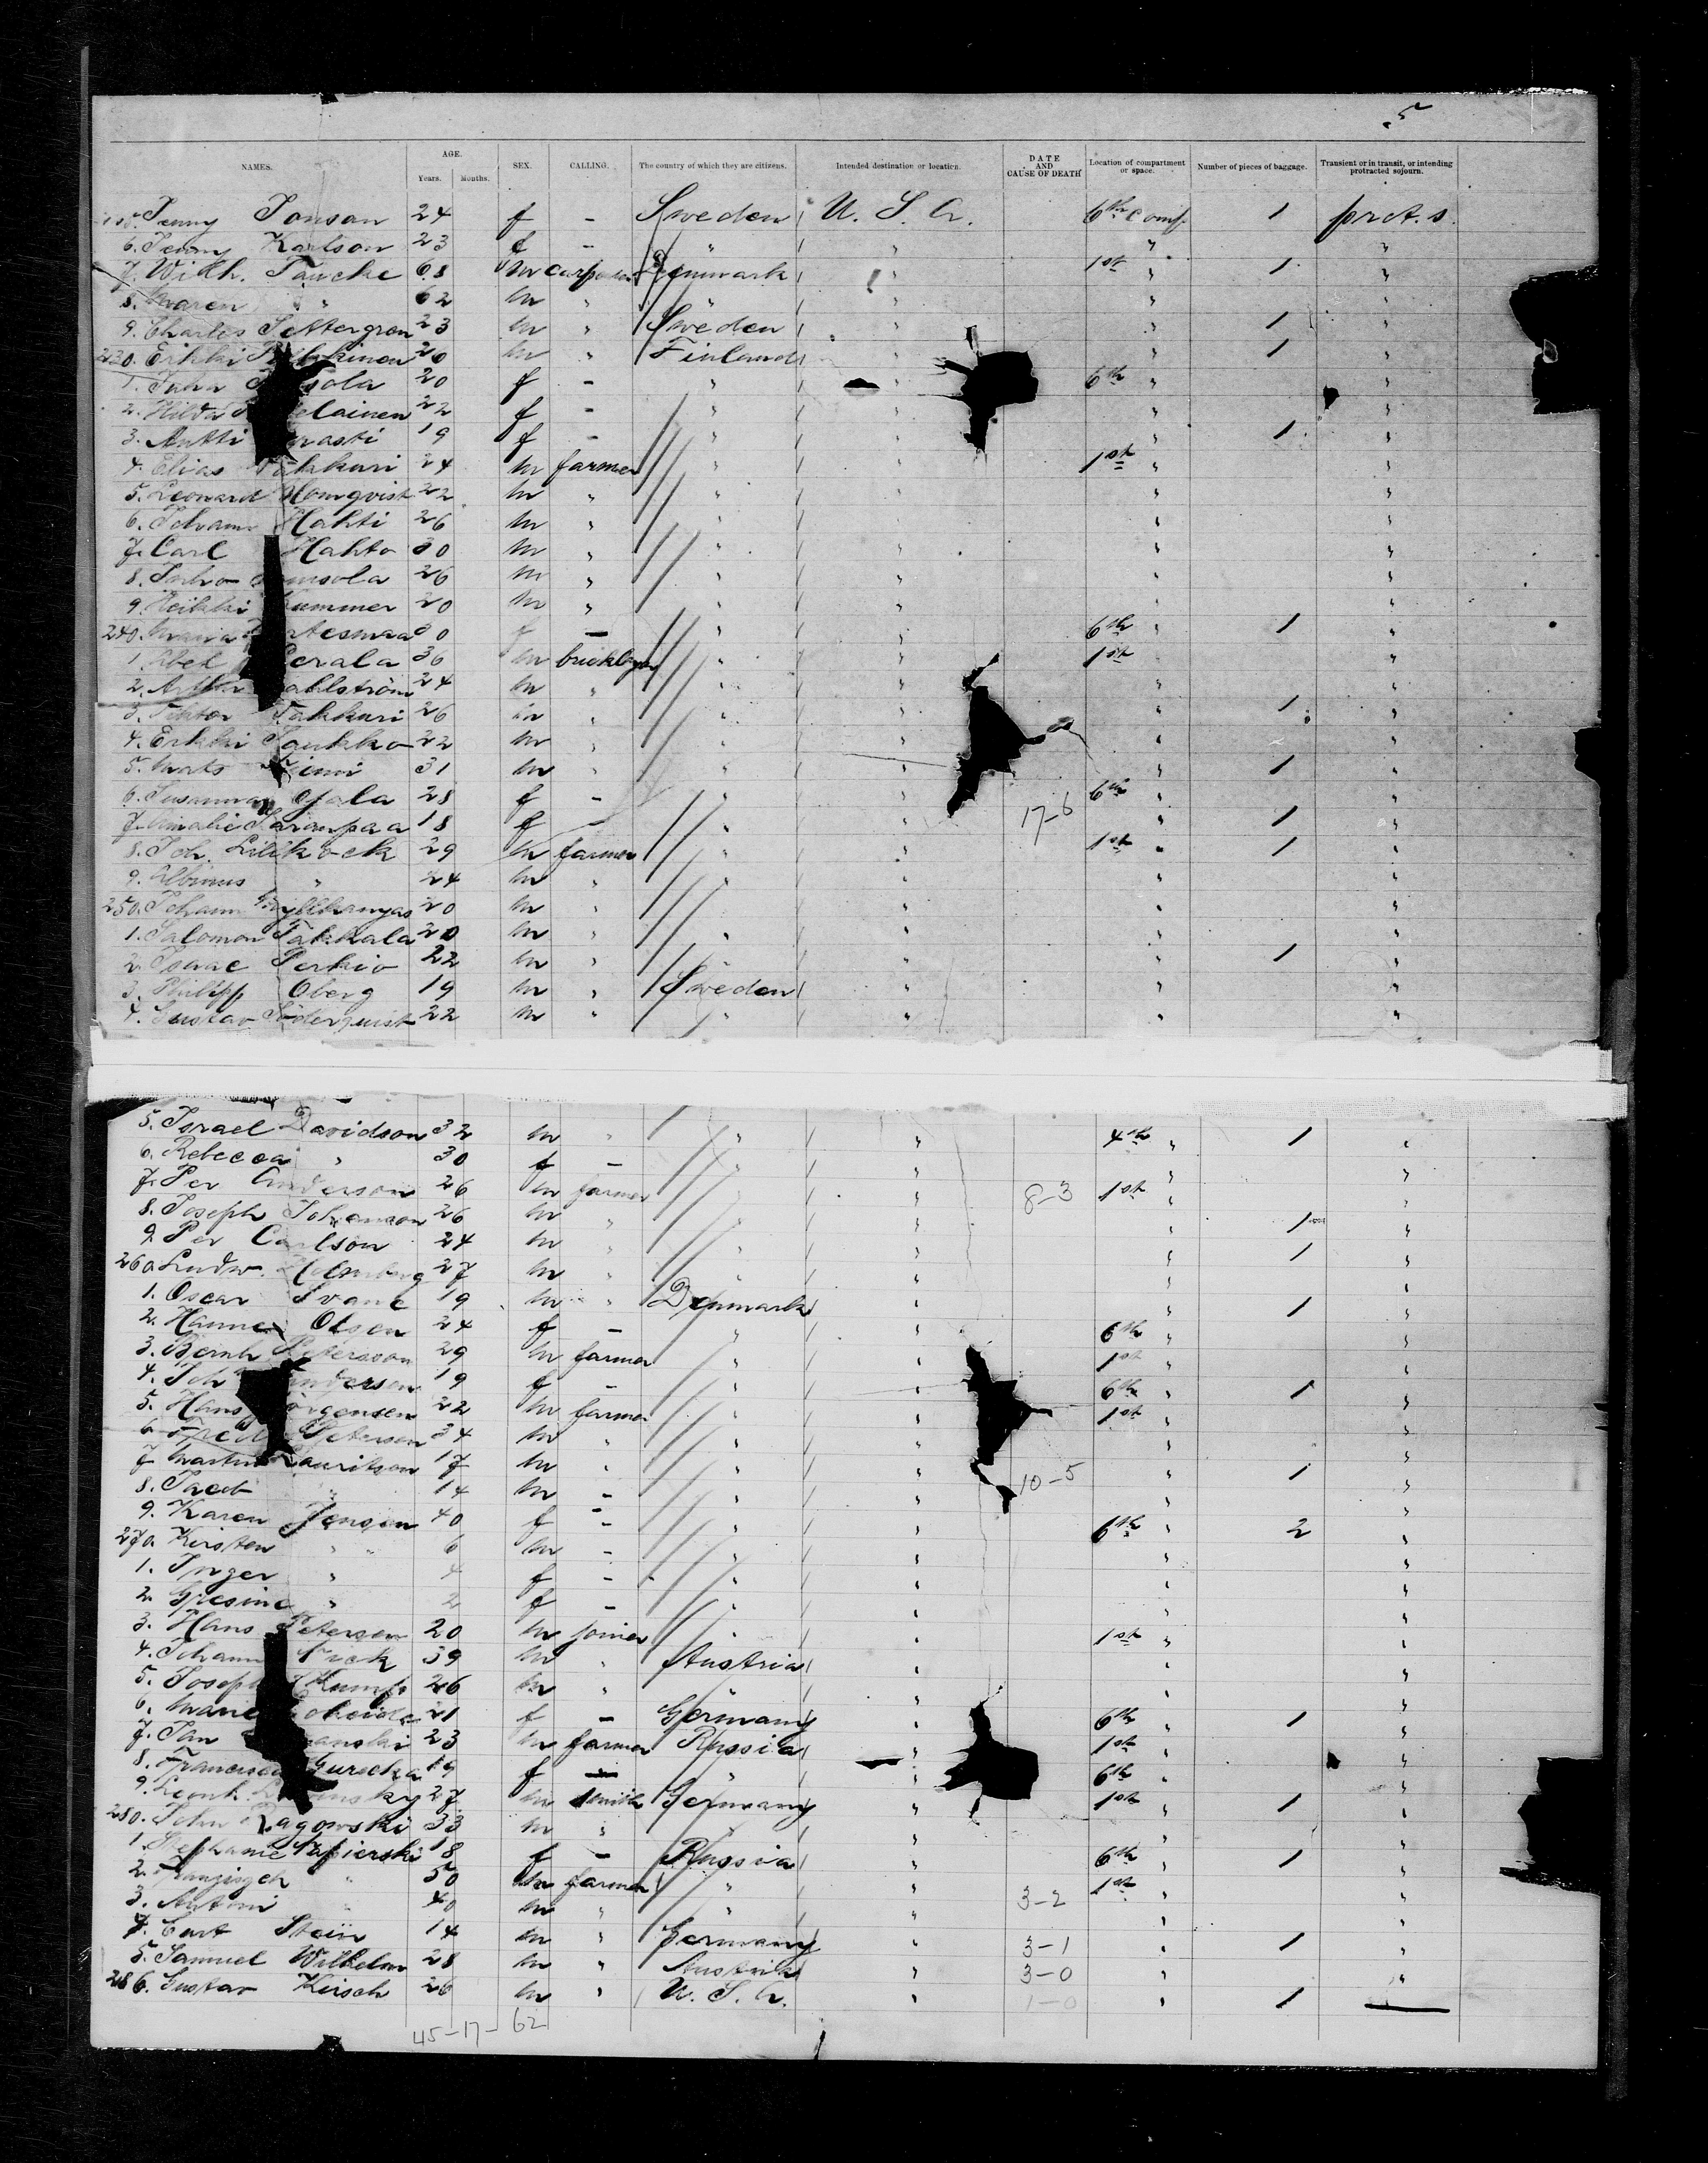 5
NAMES. AGE. Years. Months. SEX. CALLING. The country of which they are citizens. Intended destination or location. DATE AND CAUSE OF DEATH Location of compartment or space. Number of pieces of baggage. Transient or in transit, or intending protracted sojourn.
Jenny Jonson 24 f – Sweden U. S. A. 6th Comp. 1 prot. s.
6. Jenny Karlson 23 f – " " " "
7. Wilh. 68 m Denmark " 1st " 1 "
8. Karen " 62 m " " " " "
9. Charles Settergren 23 m " Sweden " " 1 "
230. Erkki 20 m " Finland " " 1 "
1. 20 f – " " 6th " "
2. Hilda 22 f – " " " "
3. Antti 19 f – " " 1 "
4. Elias 24 m farmer " " 1st " "
5. Leonard Homqvist 22 m " " " " "
6. Johann Hahti 26 m " " " " "
7. Carl Hahto 30 m " " " " "
8. Juho 26 m " " " " "
9. Heikki Kummer 20 m " " " " "
240. Maria f – " " 6th " 1 "
1. Abel 36 m bricklayer " " 1st "
2. Arthur 24 m " " " " "
3. Takkuri 26 m " " " " 1 "
4. Erkki 22 m " " " " "
5. Mats 31 m " " " " 1 "
6. Susanna Ojala 28 f – " 6th " "
7. Amalie 18 f – " " 17-6 " 1 "
8. Joh. Lillkock 29 m farmer " " 1st " 1 "
9. Albinus " 24 m " " " " "
250. Johann 20 m " " " " "
1. Salomon Takkala 20 m " " " " "
2. Isaac Perkio 22 m " " " " 1 "
3. Philipp Oberg 19 m " Sweden " " "
4. Gustav Söderquist 22 m " " " " "
5. Israel Davidson 32 m " " " 4th " 1 "
6. Rebecca " 30 f – " " " "
7. Per Anderson 26 m farmer " " 8-3 1st " "
8. Joseph Johanson 26 m " " " " 1 "
9. Per Carlson 24 m " " " " 1 "
260. Ludw. Holmberg 27 m " " " " "
1. Oscar Svane 19 m " Denmark " " 1 "
2. Hanne Olsen 24 f – " " 6th " "
3. Bernh. Petersson 29 m farmer " " 1st " "
4. Joh Andersen 19 f – " " 6th " 1 "
5. Hans Jörgensen 22 m farmer " " 1st " "
6. Petersen 34 m " " " " "
7. Martin Lauritsen 17 m " " " 10-5 " 1 "
8. Jacob " 14 m – " " " "
9. Karen Jensen 40 f – " " 6th " 2 "
270. Kirsten " 6 m – " " " "
1. Inger " 4 f – " " " "
2. Gjesine " 2 f – " " " "
3. Hans Petersen 20 m joiner " " 1st " "
4. Johann 39 m " Austria " " "
5. Joseph 26 m " " " " "
6. Marie 21 f – Germany " 6th " 1 "
7. Jan 23 m farmer Russia " 1st " "
8. Francisca 19 f – " " 6th " "
9. Leonh. 27 m smith Germany " 1st " 1 "
280. John Ragowski 33 m " " " " "
1. Stephanie 18 f – Russia " 6th " 1 "
2. 50 m farmer " " 1st " "
3. Antoni " 40 m " " " 3-2 " "
4. Curt Stein 14 m " Germany " 3-1 " 1 "
5. Samuel Wilhelm 28 m " Austria " 3-0 " "
286. Gustav Kirsch 26 m " U. S. A. " 1-0 " 1
45-17-62